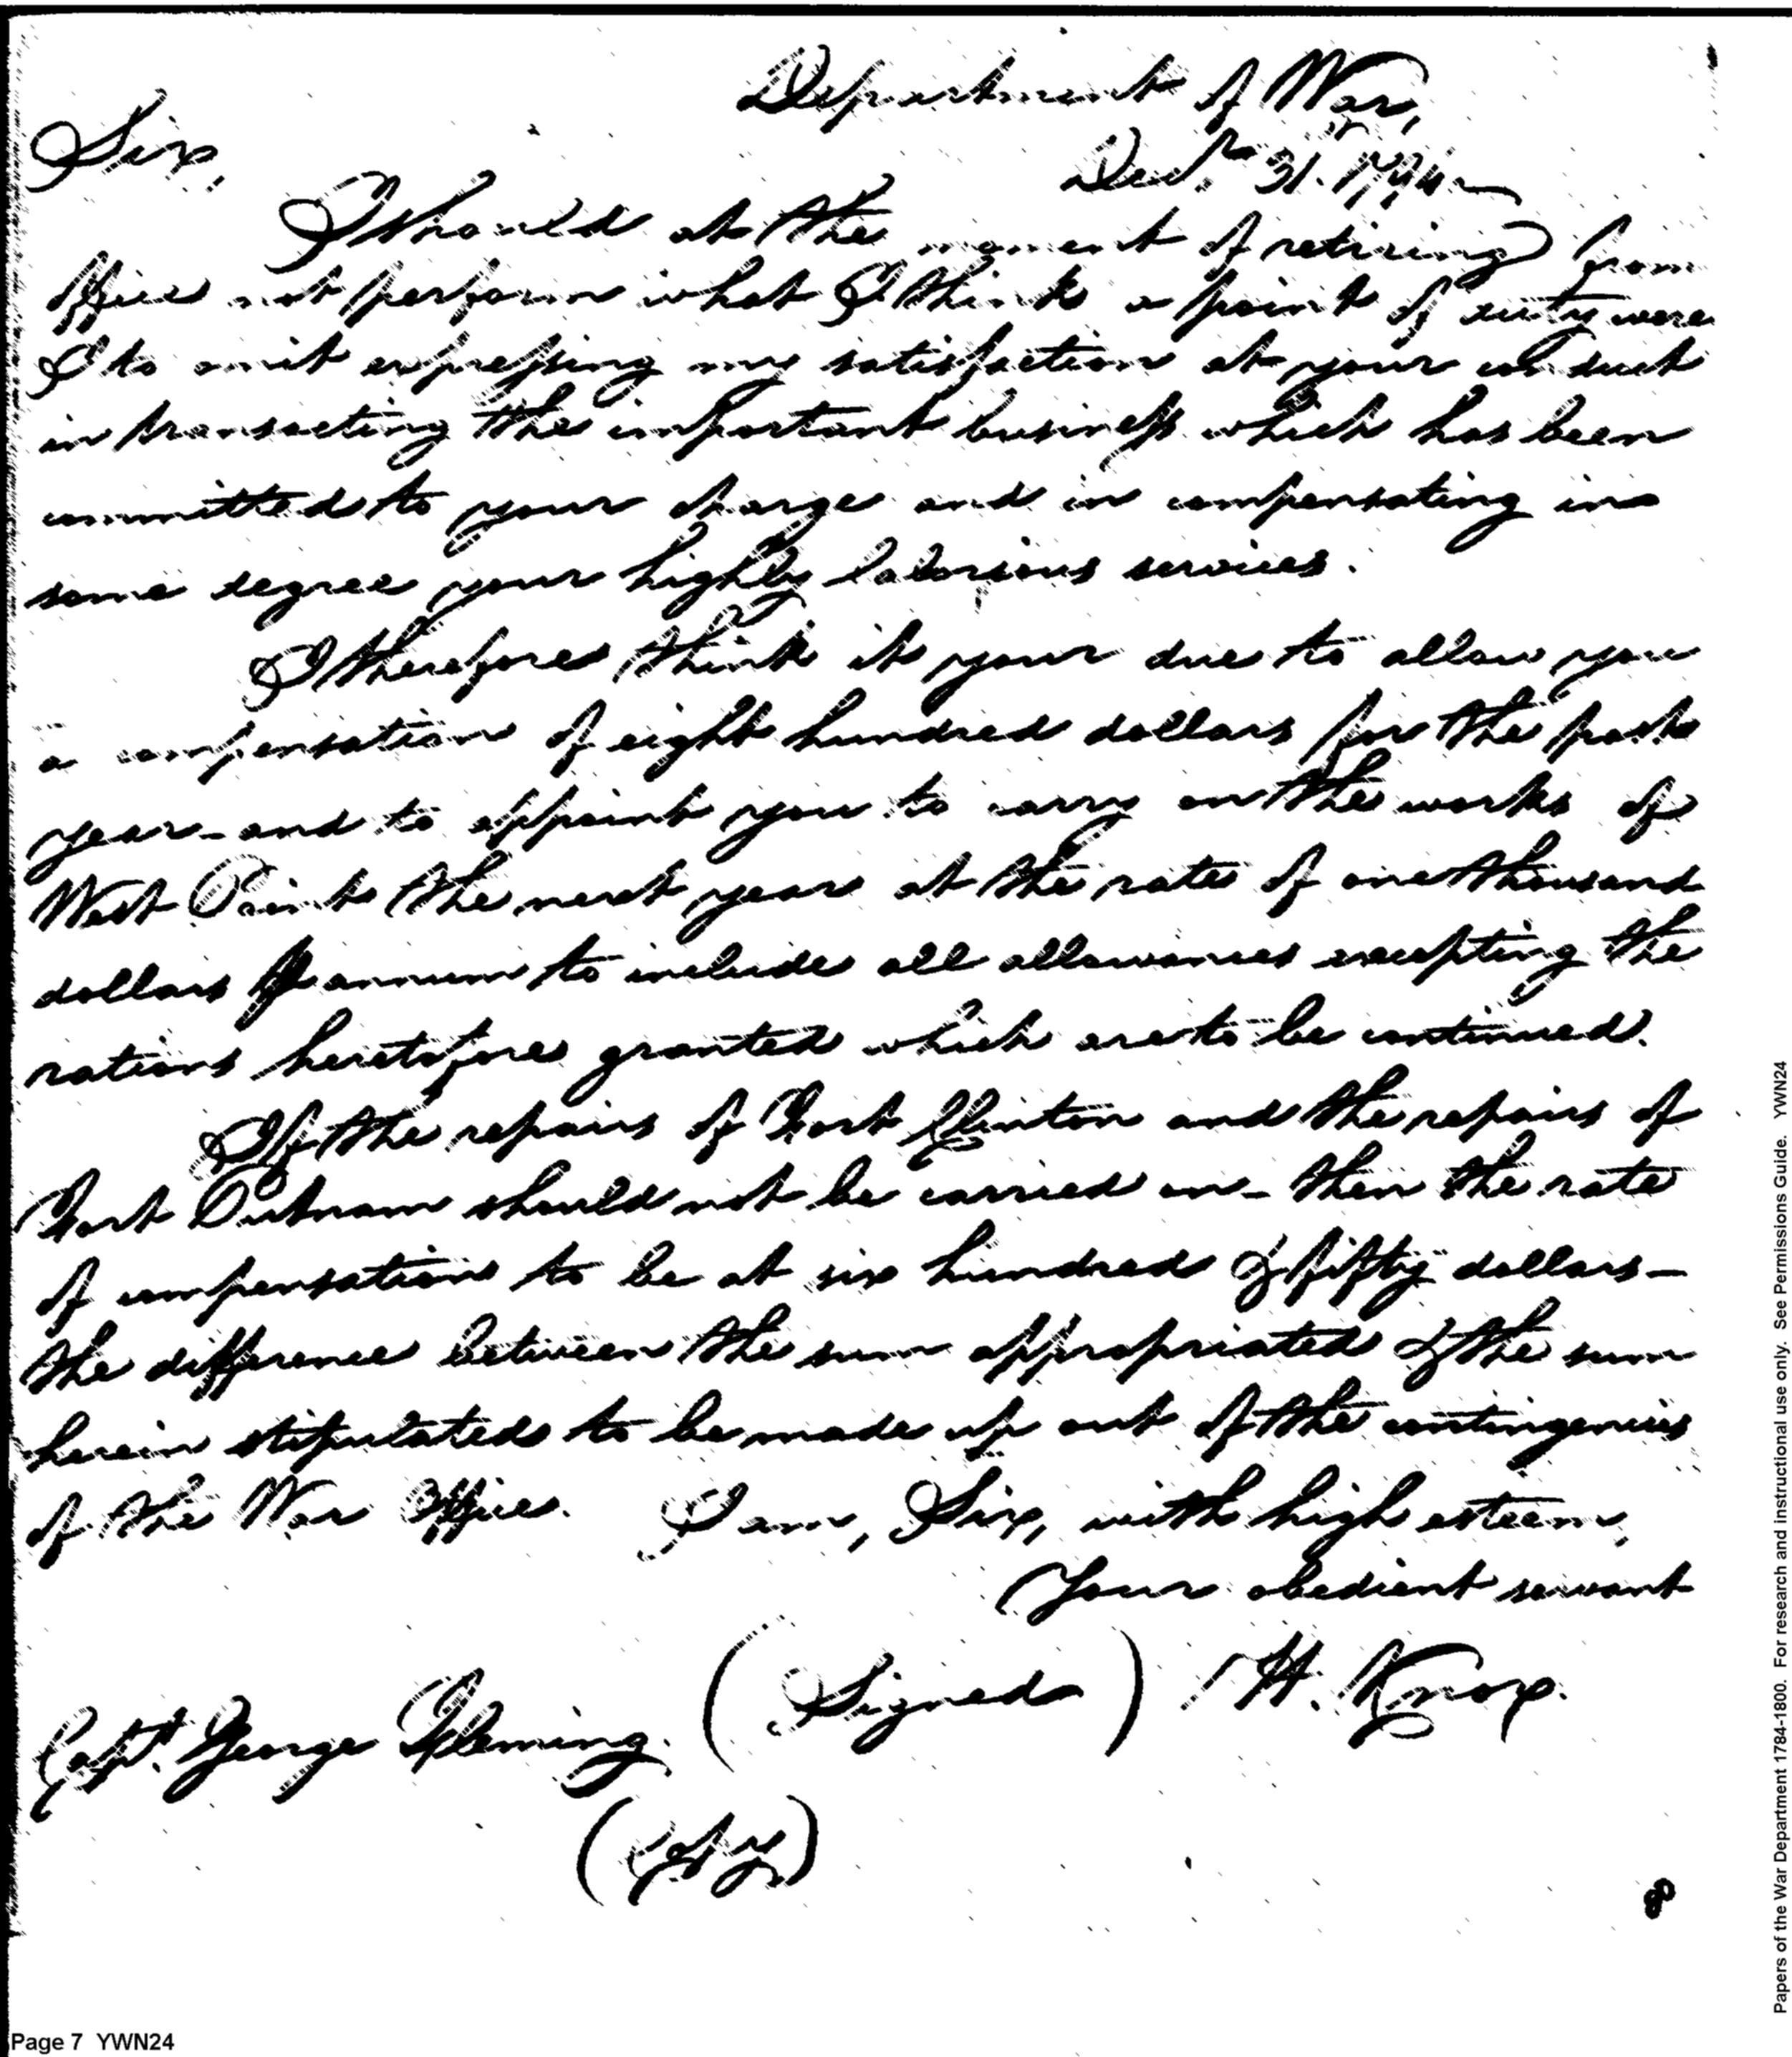 Department of War,
Decr. 31. 1794
Sir,
I should at the moment of retiring from
Office not perform what I think a point of duty were
I to omit expressing my satisfaction at your conduct
in transacting the important business which has been
committed to your charge and in compensating in
some degree your highly laborious services.
I therefore think it your due to allow you
a compensation of eight hundred dollars for the past
year - and to appoint you to carry on the works of
West Point the next year at the rate of one thousand
dollars P annum to include all allowances excepting the
rations heretofore granted which are to be continued.
If the repairs of Fort Clinton and the repairs of
Fort Putnam should not be carried on - then the rate
of compensation to be at six hundred & fifty dollars -
the difference between the sum appropriated & the sum
herein stipulated to be made up out of the contingencies
of the War Office. I am, Sir, with high esteem,
Your obedient servant
(Signed) H. Knox.
Capt. George Fleming.
(Copy)
8
Page 7 YWN24
Papers of the War Department 1784-1800. For research and instructional use only. See Permissions Guide. YWN24